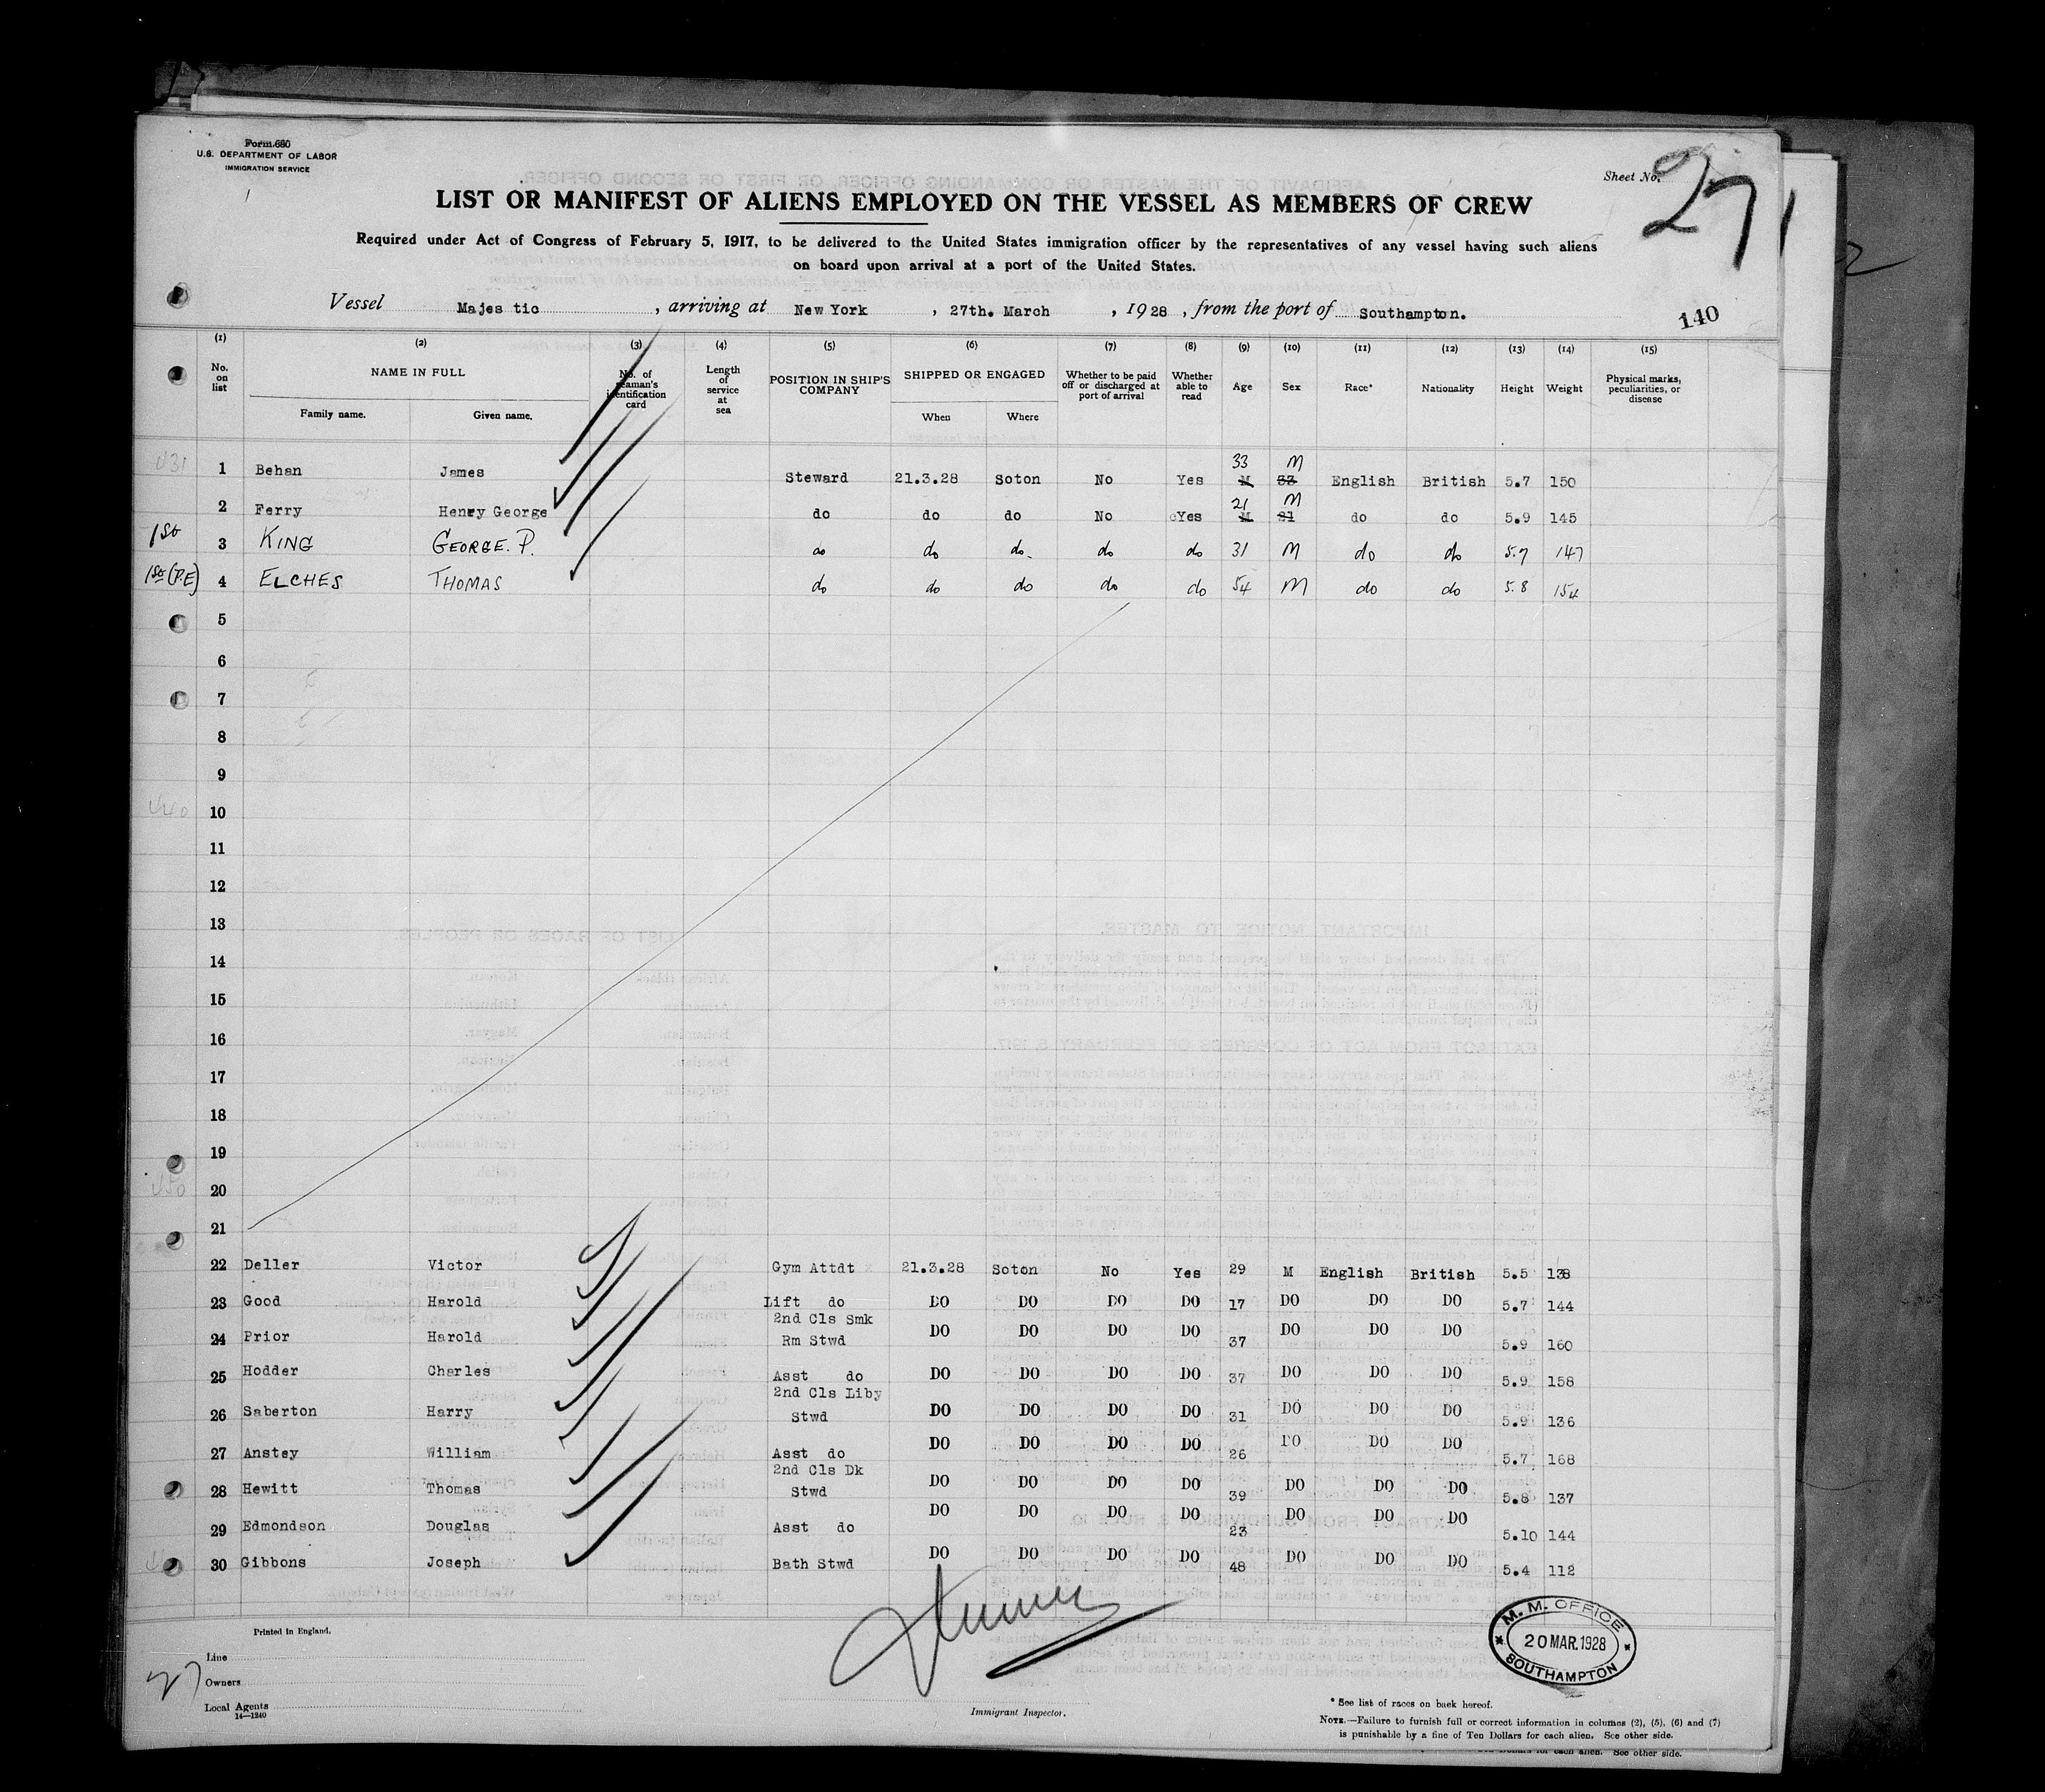 Form 680
U.S. DEPARTMENT OF LABOR
IMMIGRATION SERVICE
Sheet No. 27
LIST OR MANIFEST OF ALIENS EMPLOYED ON THE VESSEL AS MEMBERS OF CREW
Required under Act of Congress of February 5, 1917, to be delivered to the United States immigration officer by the representatives of any vessel having such aliens
on board upon arrival at a port of the United States.
Vessel Majestic, arriving at New York, 27th. March, 1928, from the port of Southampton.
140
(1) (2) (3) (4) (5) (6) (7) (8) (9) (10) (11) (12) (13) (14) (15)
No. on list NAME IN FULL Family name. Given name. No. of seaman's identification card Length of service at sea POSITION IN SHIP'S COMPANY SHIPPED OR ENGAGED When Where Whether to be paid off or discharged at port of arrival Whether able to read Age Sex Race* Nationality Height Weight Physical marks, peculiarities, or disease
33 M
1 Behan James Steward 21.3.28 Soton No Yes M 33 English British 5.7 150
21 M
2 Ferry Henry George do do do No Yes M 21 do do 5.9 145
1st 3 KING GEORGE. P. do do do do do 31 M do do 5.7 147
1st (P.E) 4 ELCHES THOMAS do do do do do 54 M do do 5.8 154
5
6
7
8
9
10
11
12
13
14
15
16
17
18
19
20
21
22 Deller Victor Gym Attdt 21.3.28 Soton No Yes 29 M English British 5.5 138
23 Good Harold Lift do DO DO DO DO 17 DO DO DO 5.7 144
24 Prior Harold 2nd Cls Smk Rm Stwd DO DO DO DO 37 DO DO DO 5.9 160
25 Hodder Charles Asst do DO DO DO DO 37 DO DO DO 5.9 158
26 Saberton Harry 2nd Cls Liby Stwd DO DO DO DO 31 DO DO DO 5.9 136
27 Anstey William Asst do DO DO DO DO 26 DO DO DO 5.7 168
28 Hewitt Thomas 2nd Cls Dk Stwd DO DO DO DO 39 DO DO DO 5.8 137
29 Edmondson Douglas Asst do DO DO DO DO 23 DO DO DO 5.10 144
30 Gibbons Joseph Bath Stwd DO DO DO DO 48 DO DO DO 5.4 112
Printed in England.
Line
Owners
Local Agents
14—1240
27
Immigrant Inspector.
M. M. OFFICE
20 MAR. 1928
SOUTHAMPTON
* See list of races on back hereof.
NOTE.—Failure to furnish full or correct information in columns (2), (5), (6) and (7)
is punishable by a fine of Ten Dollars for each alien. See other side.